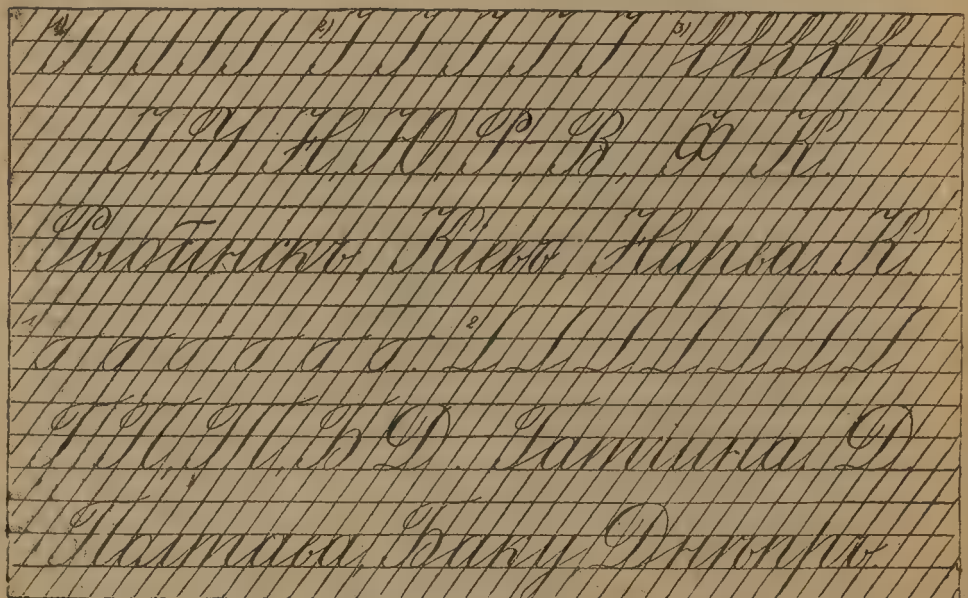 1) 2) 3)
І, У, Н, Ю, Р, В, Ф, К.
Рыбинскъ, Кіевъ, Нарва. К.
1) 2
Г, П, Т, Б, Д. Гатчина. Д.
Полтава, Баку, Днѣпръ.